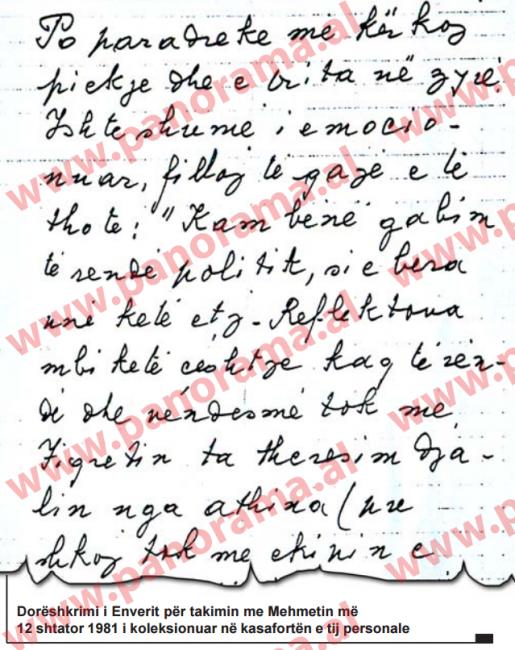 Po paradreke më kërkoj
piekje dhe e prita në zyrë.
Ishte shumë i emocio-
nuar, filloj të qajë e të
thotë: "Kam bënë gabim
të rendë politik, si e bëra
unë ketë etj. Reflektova
mbi ketë ceshtje kaq të rën-
dë dhe vendosmë tok me
Fiqretin ta theresim dja-
lin nga athina (
shkoj tok me ekipin e
Dorëshkrimi i Enverit për takimin me Mehmetin më
12 shtator 1981 i koleksionuar në kasafortën e tij personale
www.panorama.al